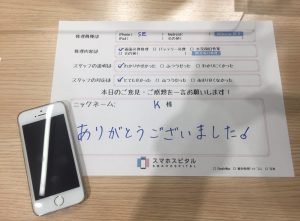 修理機種は iPhone: SE Android:
iPad:
修理内容は ☑画面交換修理 □バッテリー交換 □水没復旧作業
スタッフの説明は ☑わかりやすかった □ふつうだった □わかりにくかった
スタッフの対応は ☑とてもよかった □ふつうだった
本日のご意見・ご感想を一言お願いします!
ニックネーム: K 様
ありがとうございました
スマホスピタル
SMAHOSPITAL